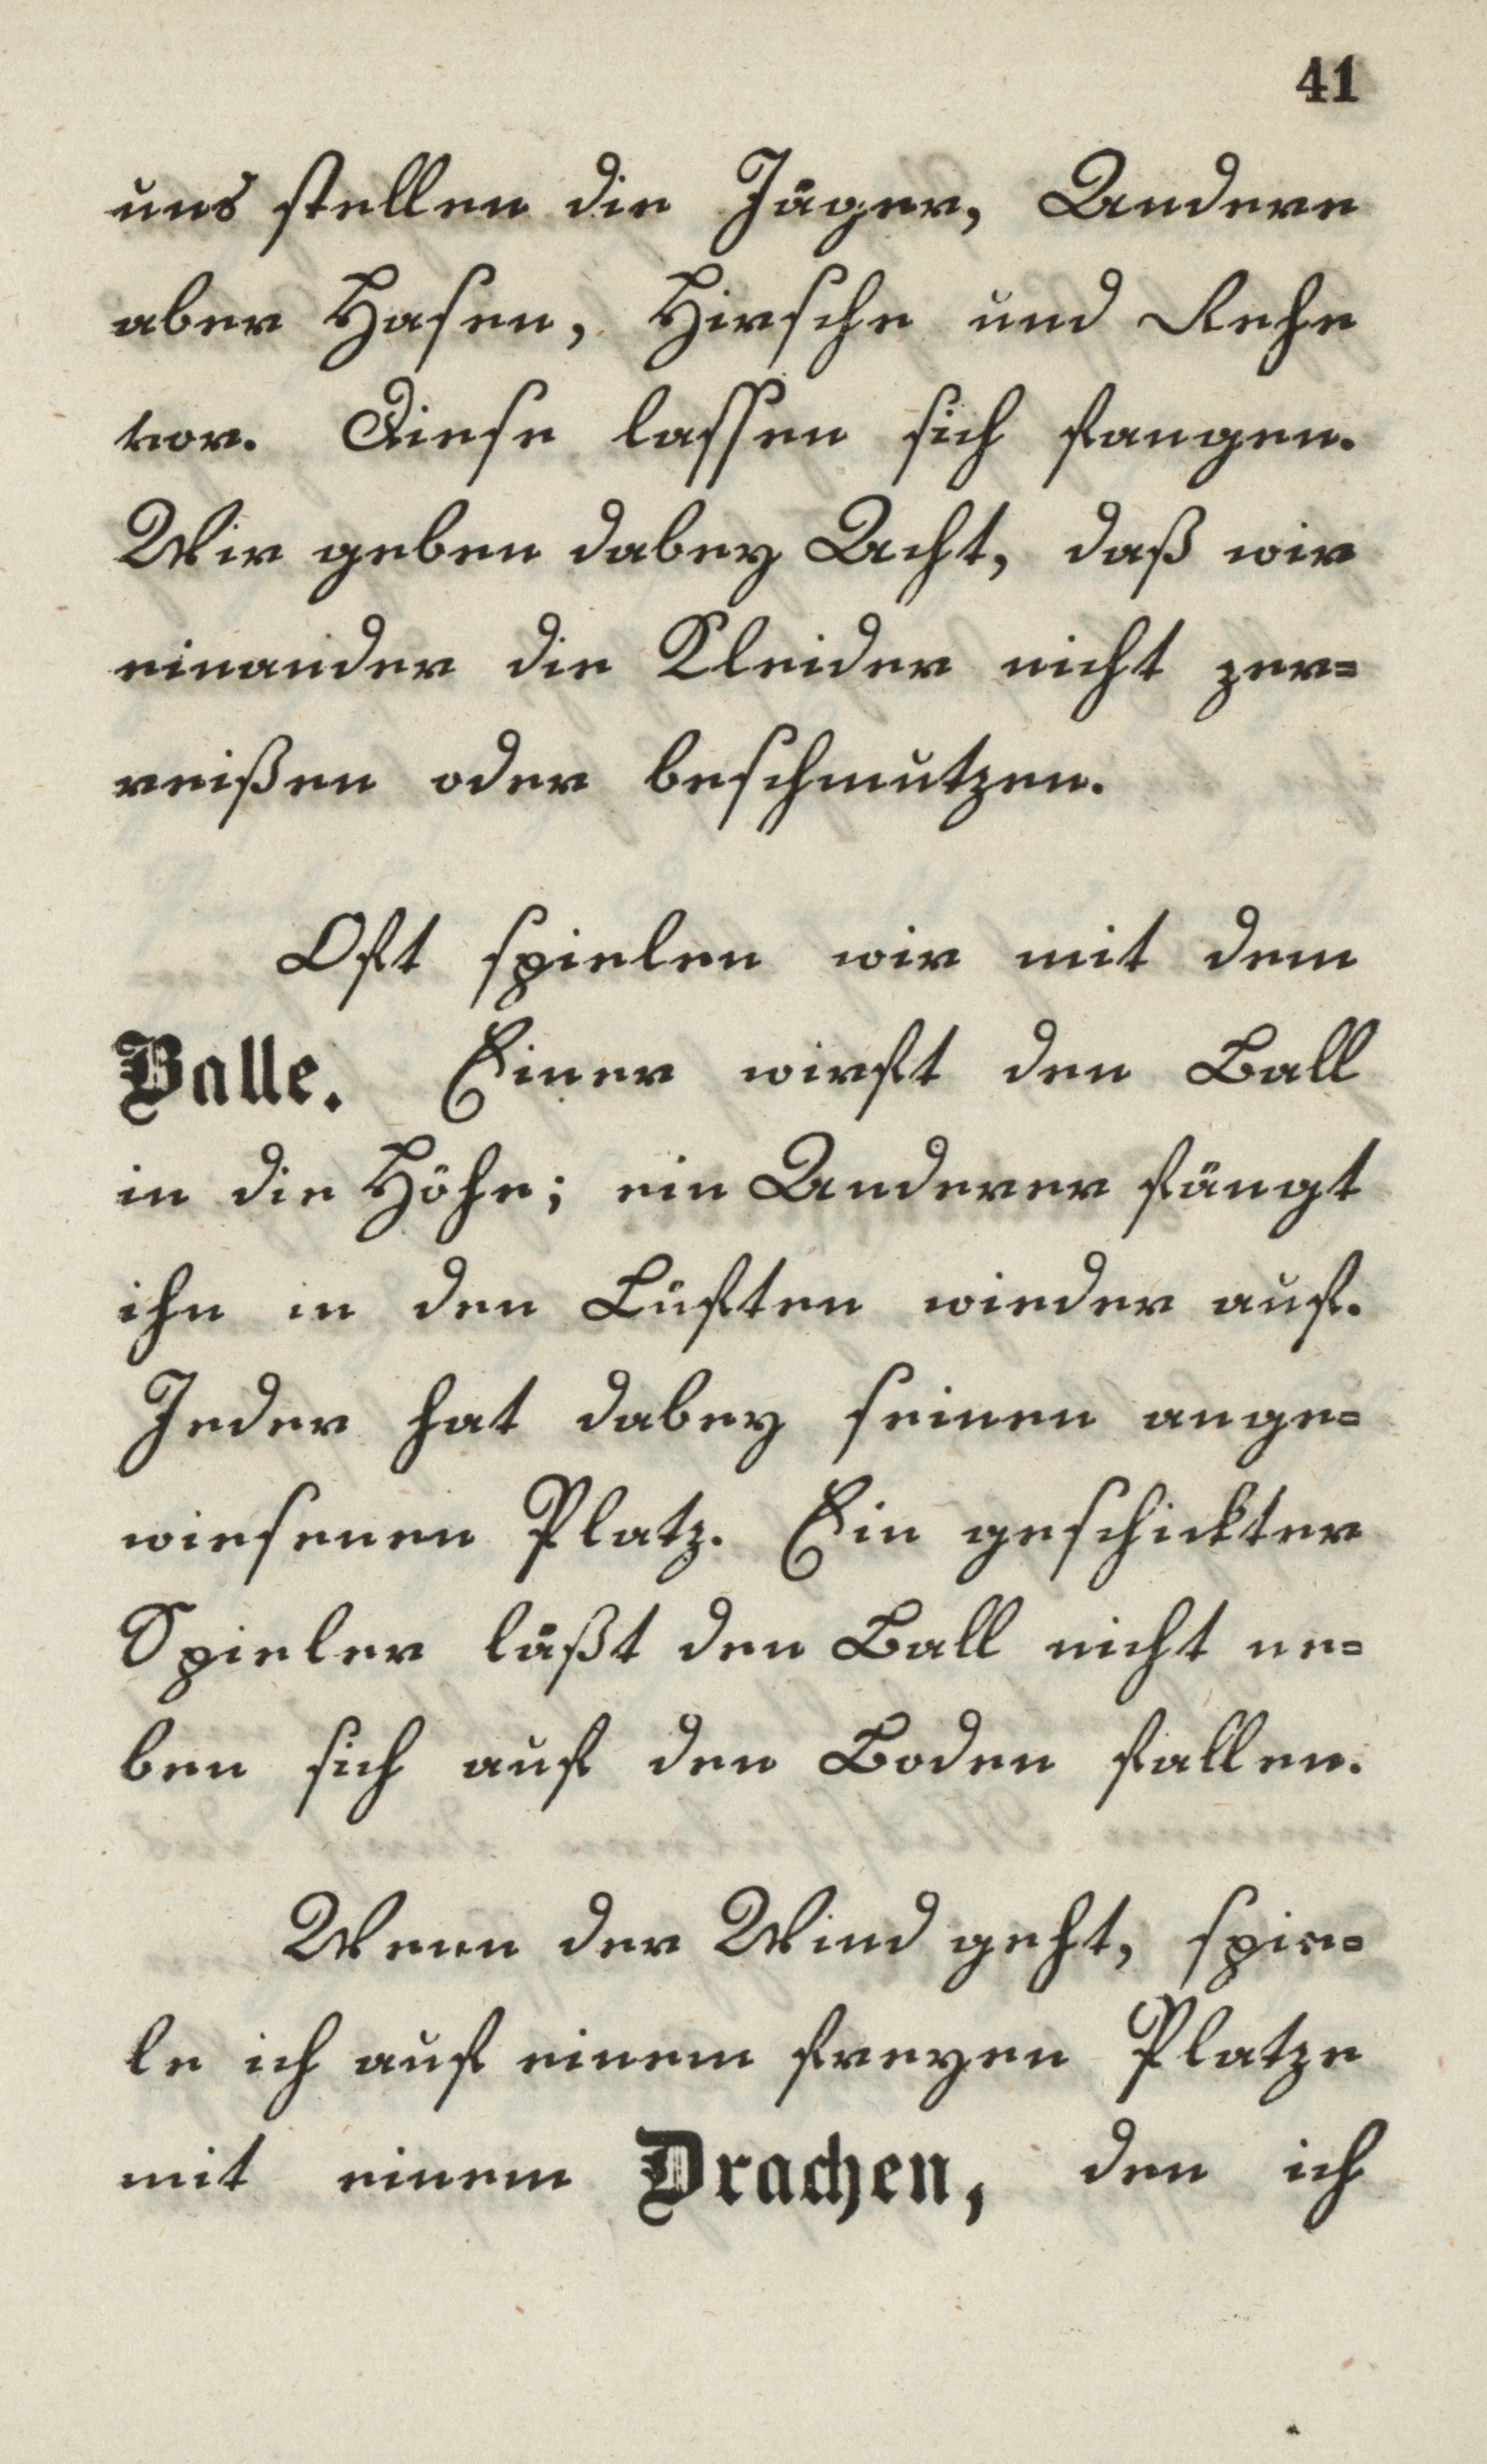 41
uns stellen die Jäger, Andere
aber Hasen, Hirsche und Rehe
vor. Diese lassen sich fangen.
Wir geben dabey Acht, daß wir
einander die Kleider nicht zer=
reißen oder beschmutzen.
Oft spielen wir mit dem
Balle. Einer wirft den Ball
in die Höhe; ein Anderer fängt
ihn in den Lüften wieder auf.
Jeder hat dabey seinen ange=
wiesenen Platz. Ein geschickter
Spieler läßt den Ball nicht ne=
ben sich auf den Boden fallen.
Wenn der Wind geht, spie=
le ich auf einem freyen Platze
mit einem Drachen, den ich